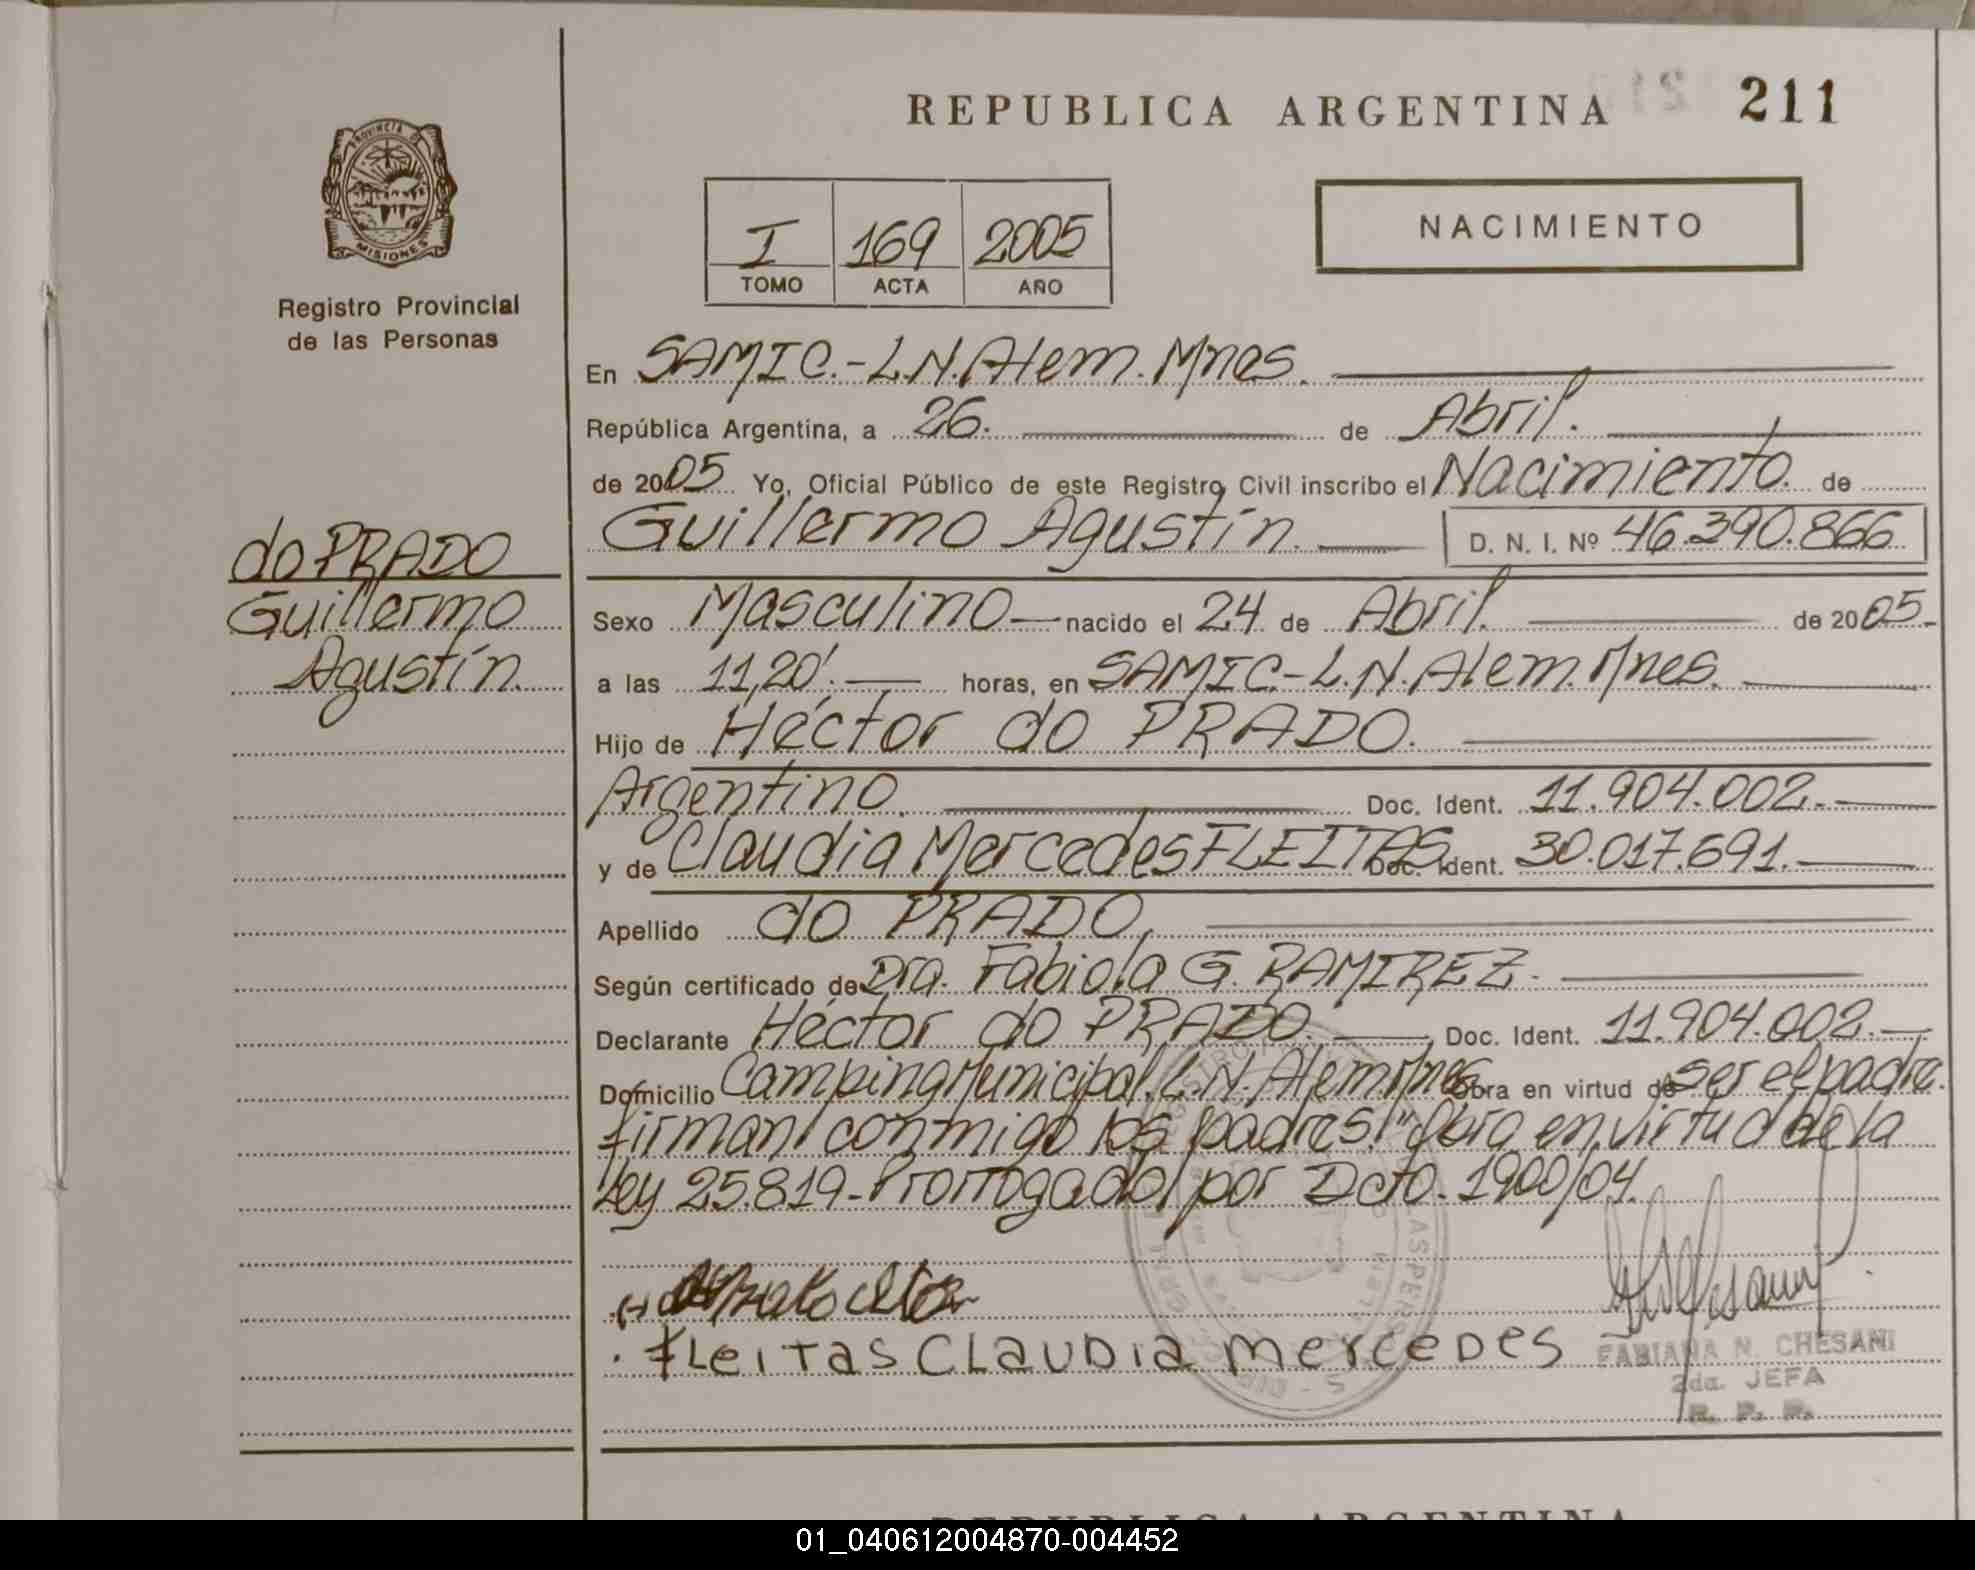 REPUBLICA ARGENTINA 211
PROVINCIA DE
MISIONES
Registro Provincial
de las Personas
NACIMIENTO
I 169 2005
TOMO ACTA AÑO
En SAMIC.-L.N.Alem.Mnes.
República Argentina, a 26. de Abril.
de 2005 Yo, Oficial Público de este Registro Civil inscribo el Nacimiento. de
Guillermo Agustín. D. N. I. Nº 46.390.866
do PRADO
Guillermo
Agustín.
Sexo Masculino nacido el 24 de Abril. de 2005.
a las 11,20'. horas, en SAMIC.-L.N.Alem.Mnes.
Hijo de Héctor do PRADO.
Argentino. Doc. Ident. 11.904.002.
y de Claudia Mercedes FLEITAS Doc. Ident. 30.017.691.
Apellido do PRADO.
Según certificado de Dra. Fabiola G. RAMIREZ.
Declarante Héctor do PRADO. Doc. Ident. 11.904.002.
Domicilio Camping Municipal. L.N. Alem Mnes Obra en virtud de ser el padre.
firman conmigo los padres. "Obra en virtud de la
Ley 25.819-Prorrogado por Dcto. 1900/04.
FLEITAS CLAUDIA MERCEDES
FABIANA N. CHESANI
2da. JEFA
R. P. P.
REPUBLICA ARGENTINA
01_040612004870-004452